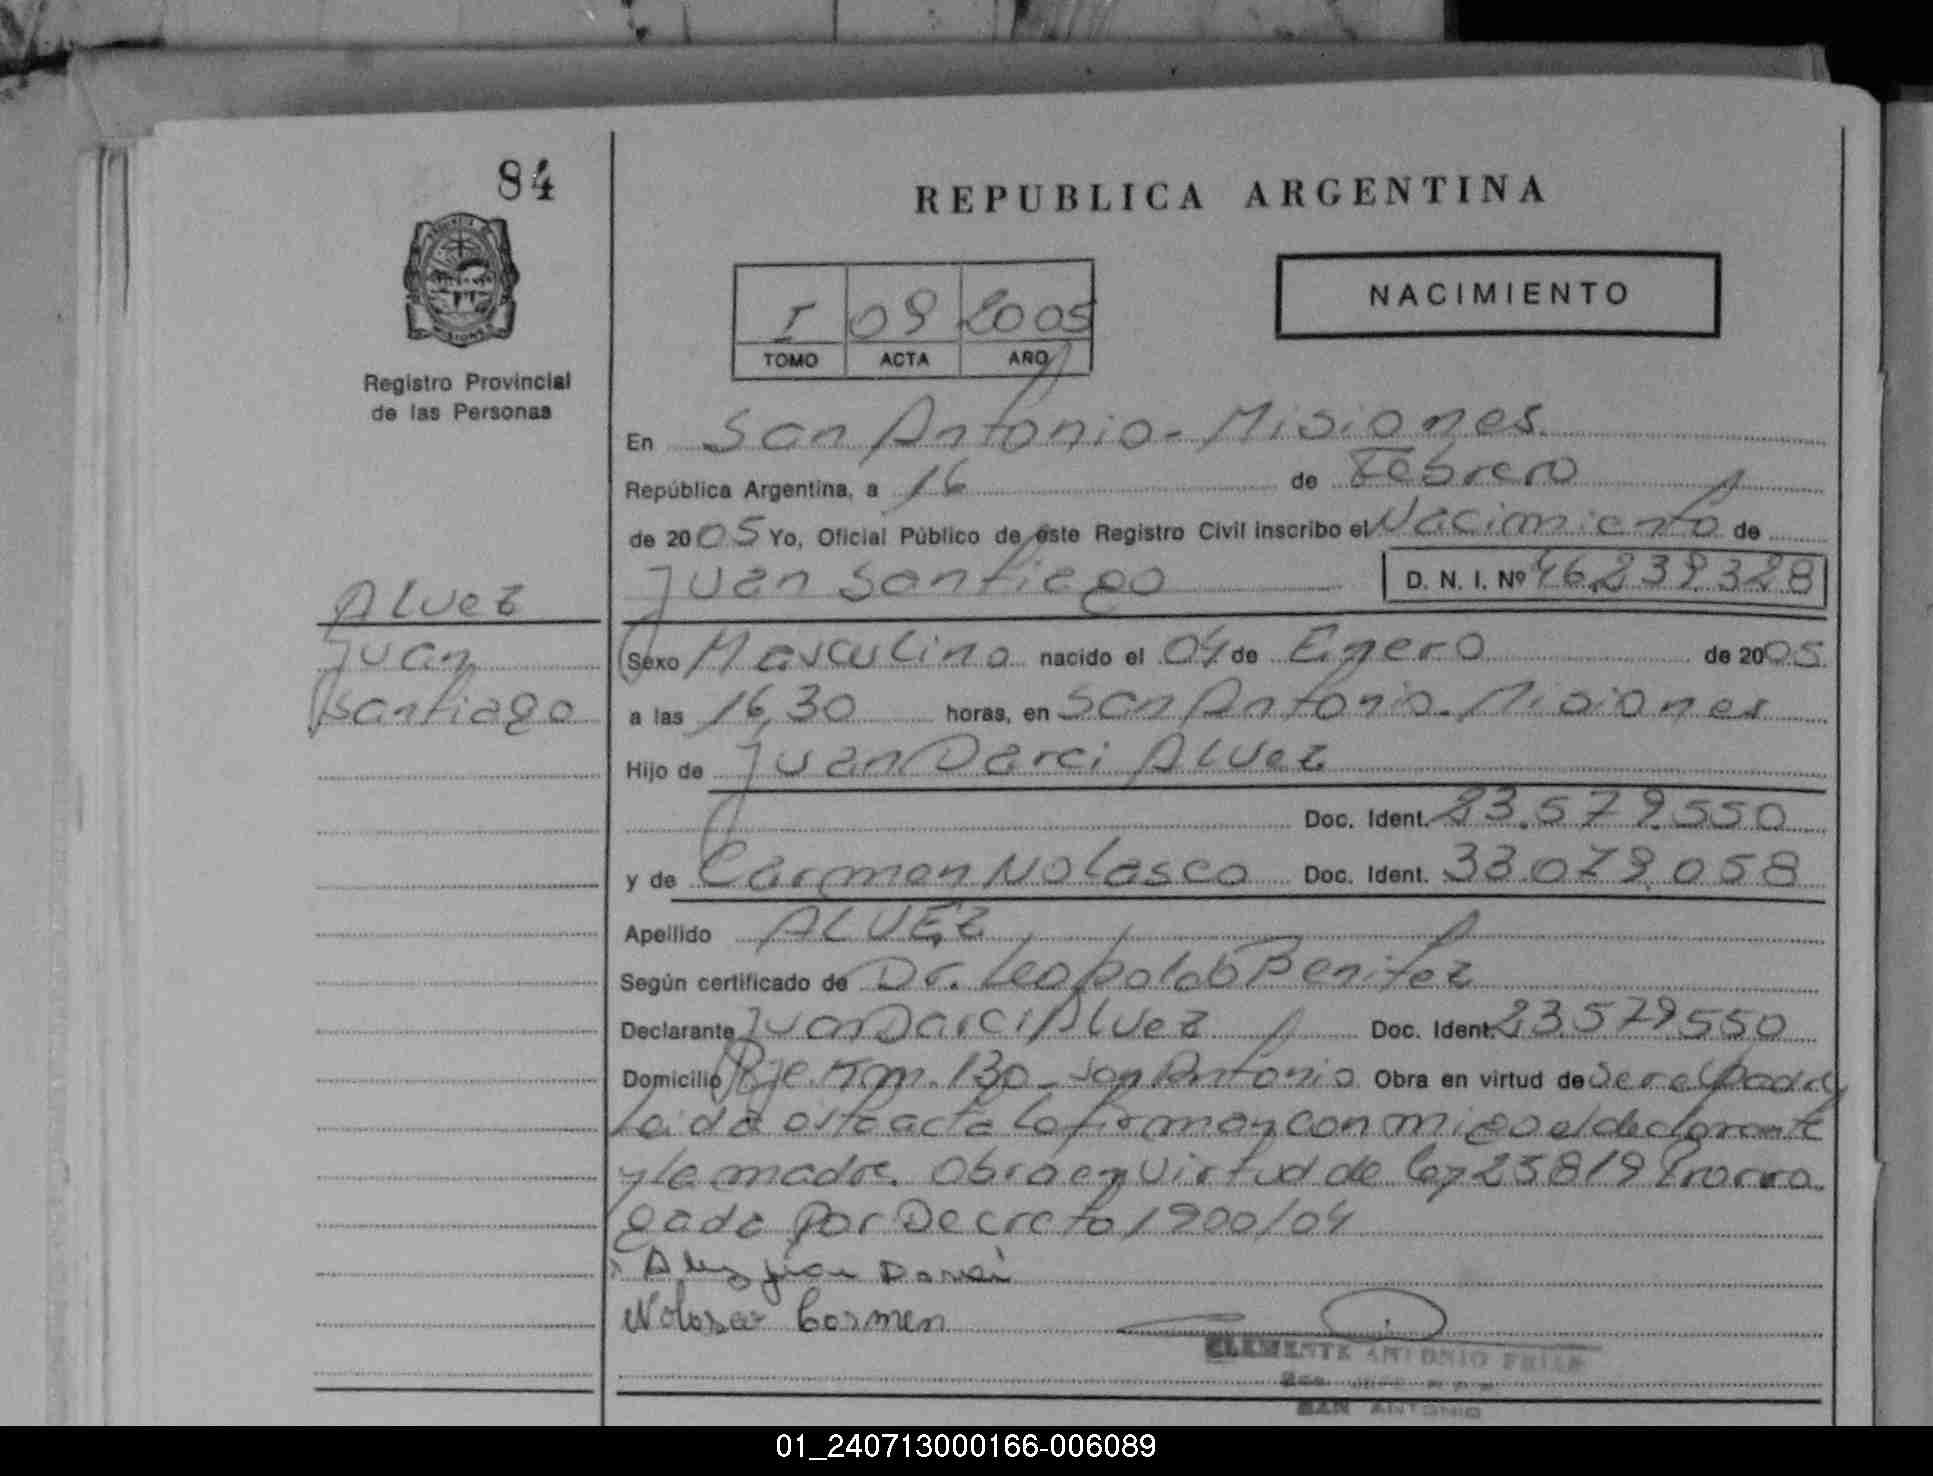 84
REPUBLICA ARGENTINA
NACIMIENTO
I 09 2005
TOMO ACTA AÑO
Registro Provincial
de las Personas
En San Antonio - Misiones
República Argentina, a 16 de Febrero
de 2005 Yo, Oficial Público de este Registro Civil inscribo el Nacimiento de
Juan Santiago D. N. I. Nº 46.239.328
Alvez
Juan
Santiago
Sexo Masculino nacido el 04 de Enero de 2005
a las 16,30 horas, en San Antonio - Misiones
Hijo de Juan Darci Alvez
Doc. Ident. 23.579.550
y de Carmen Nolasco Doc. Ident. 33.079.058
Apellido ALVEZ
Según certificado de Dr. Leopoldo Benitez
Declarante Juan Darci Alvez Doc. Ident. 23.579.550
Domicilio Pje. Km. 130 - San Antonio Obra en virtud de ser el Padre
Leida esta acta la firman con migo el declarante
y la madre. Obra en virtud de ley 25819 Prorro
gada por Decreto 1900/04
Juan Darci
Nolasco Carmen
CLEMENTE ANTONIO
SAN ANTONIO
01_240713000166-006089